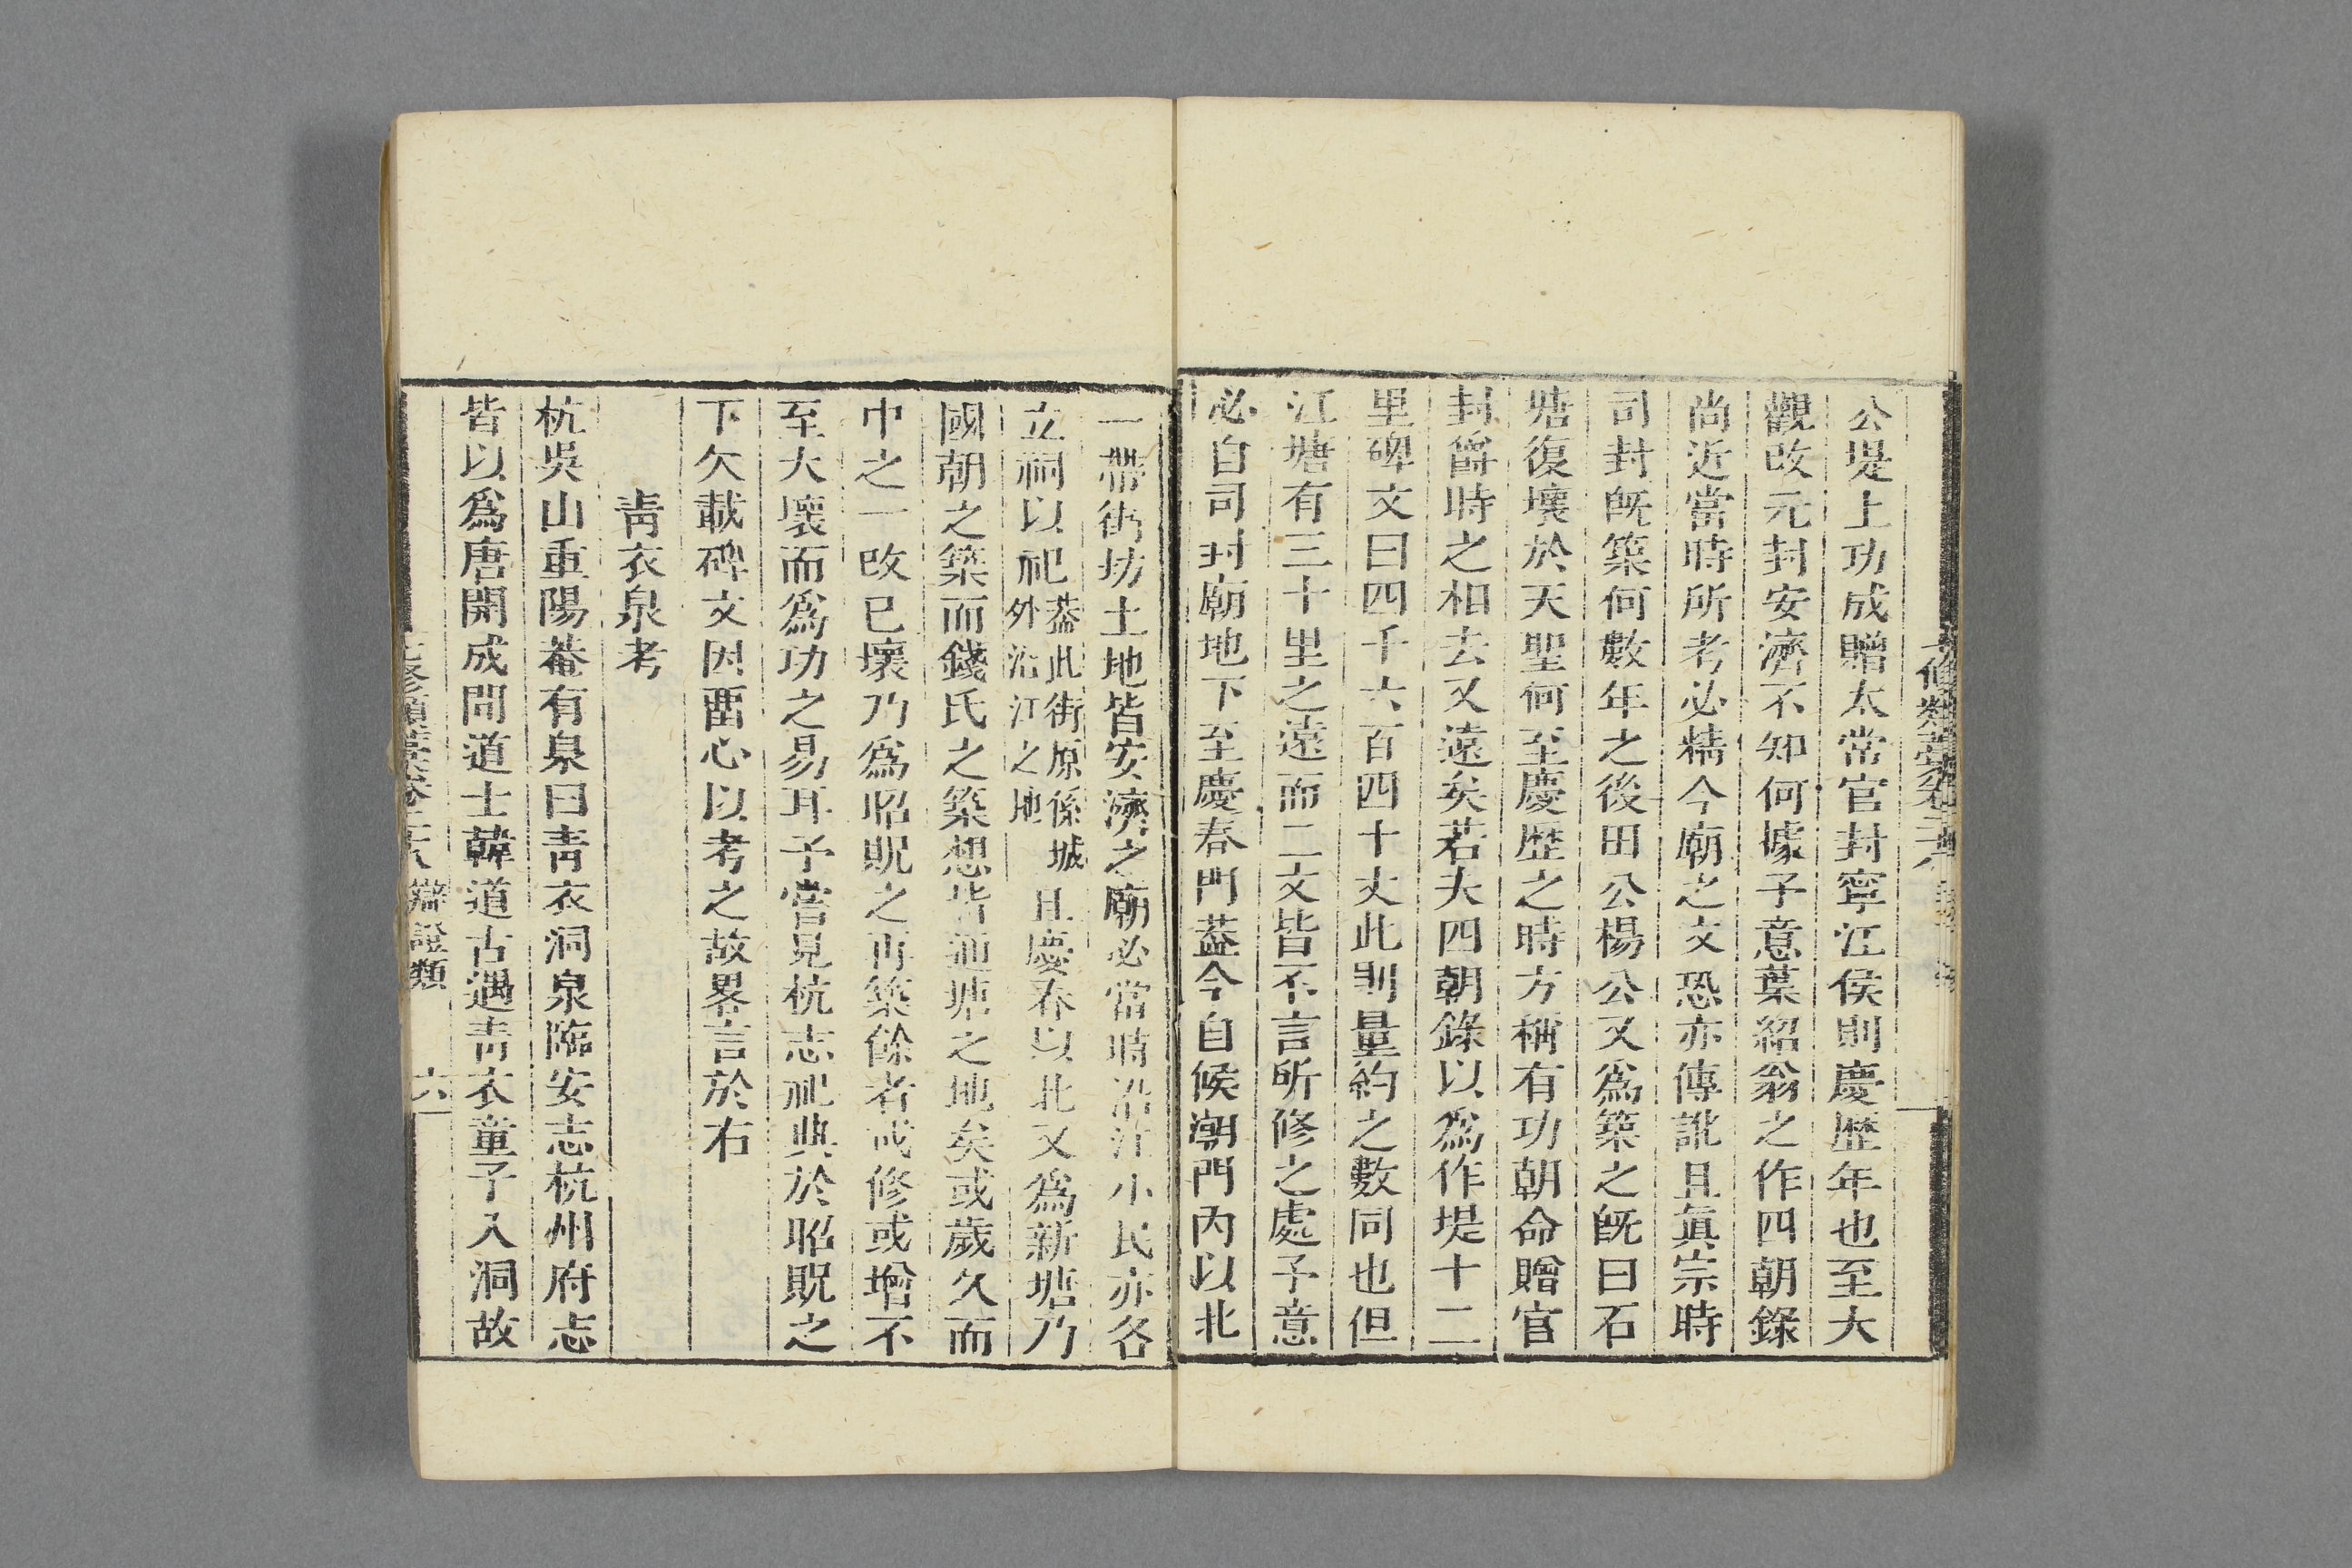 公堤上功成贈太常官封寧江侯則慶歷年也至大
觀改元封安濟不知何據子意葉紹翁之作四朝錄
尚近當時所考必精今廟之文恐亦傳訛且眞宗時
司封旣築何數年之後田公楊公又爲築之旣曰石
塘復壞於天聖何至慶歷之時方稱有功朝命贈官
封爵時之相去又遠矣若夫四朝錄以爲作堤十二
里碑文曰四千六百四十丈此則量約之數同也但
江塘有三十里之遠而二文皆不言所修之處予意
必自司封廟地下至慶春門葢今自候潮門內以北
一帶街坊土地皆安濟之廟必當時沿江小民亦各
立祠以祀葢此街原係城外沿江之地且慶春以北又爲新塘乃
國朝之築而錢氏之築想皆通塘之地矣或歲久而
中之一改已壞乃爲昭貺之再築餘者或修或增不
至大壞而爲功之易耳予嘗見杭志祀典於昭貺之
下欠載碑文因畱心以考之故畧言於右
靑衣泉考
杭吳山重陽菴有泉曰靑衣洞泉臨安志杭州府志
皆以爲唐開成間道士韓道古遇靑衣童子入洞故
七修類藁卷二十八 辯證類 六